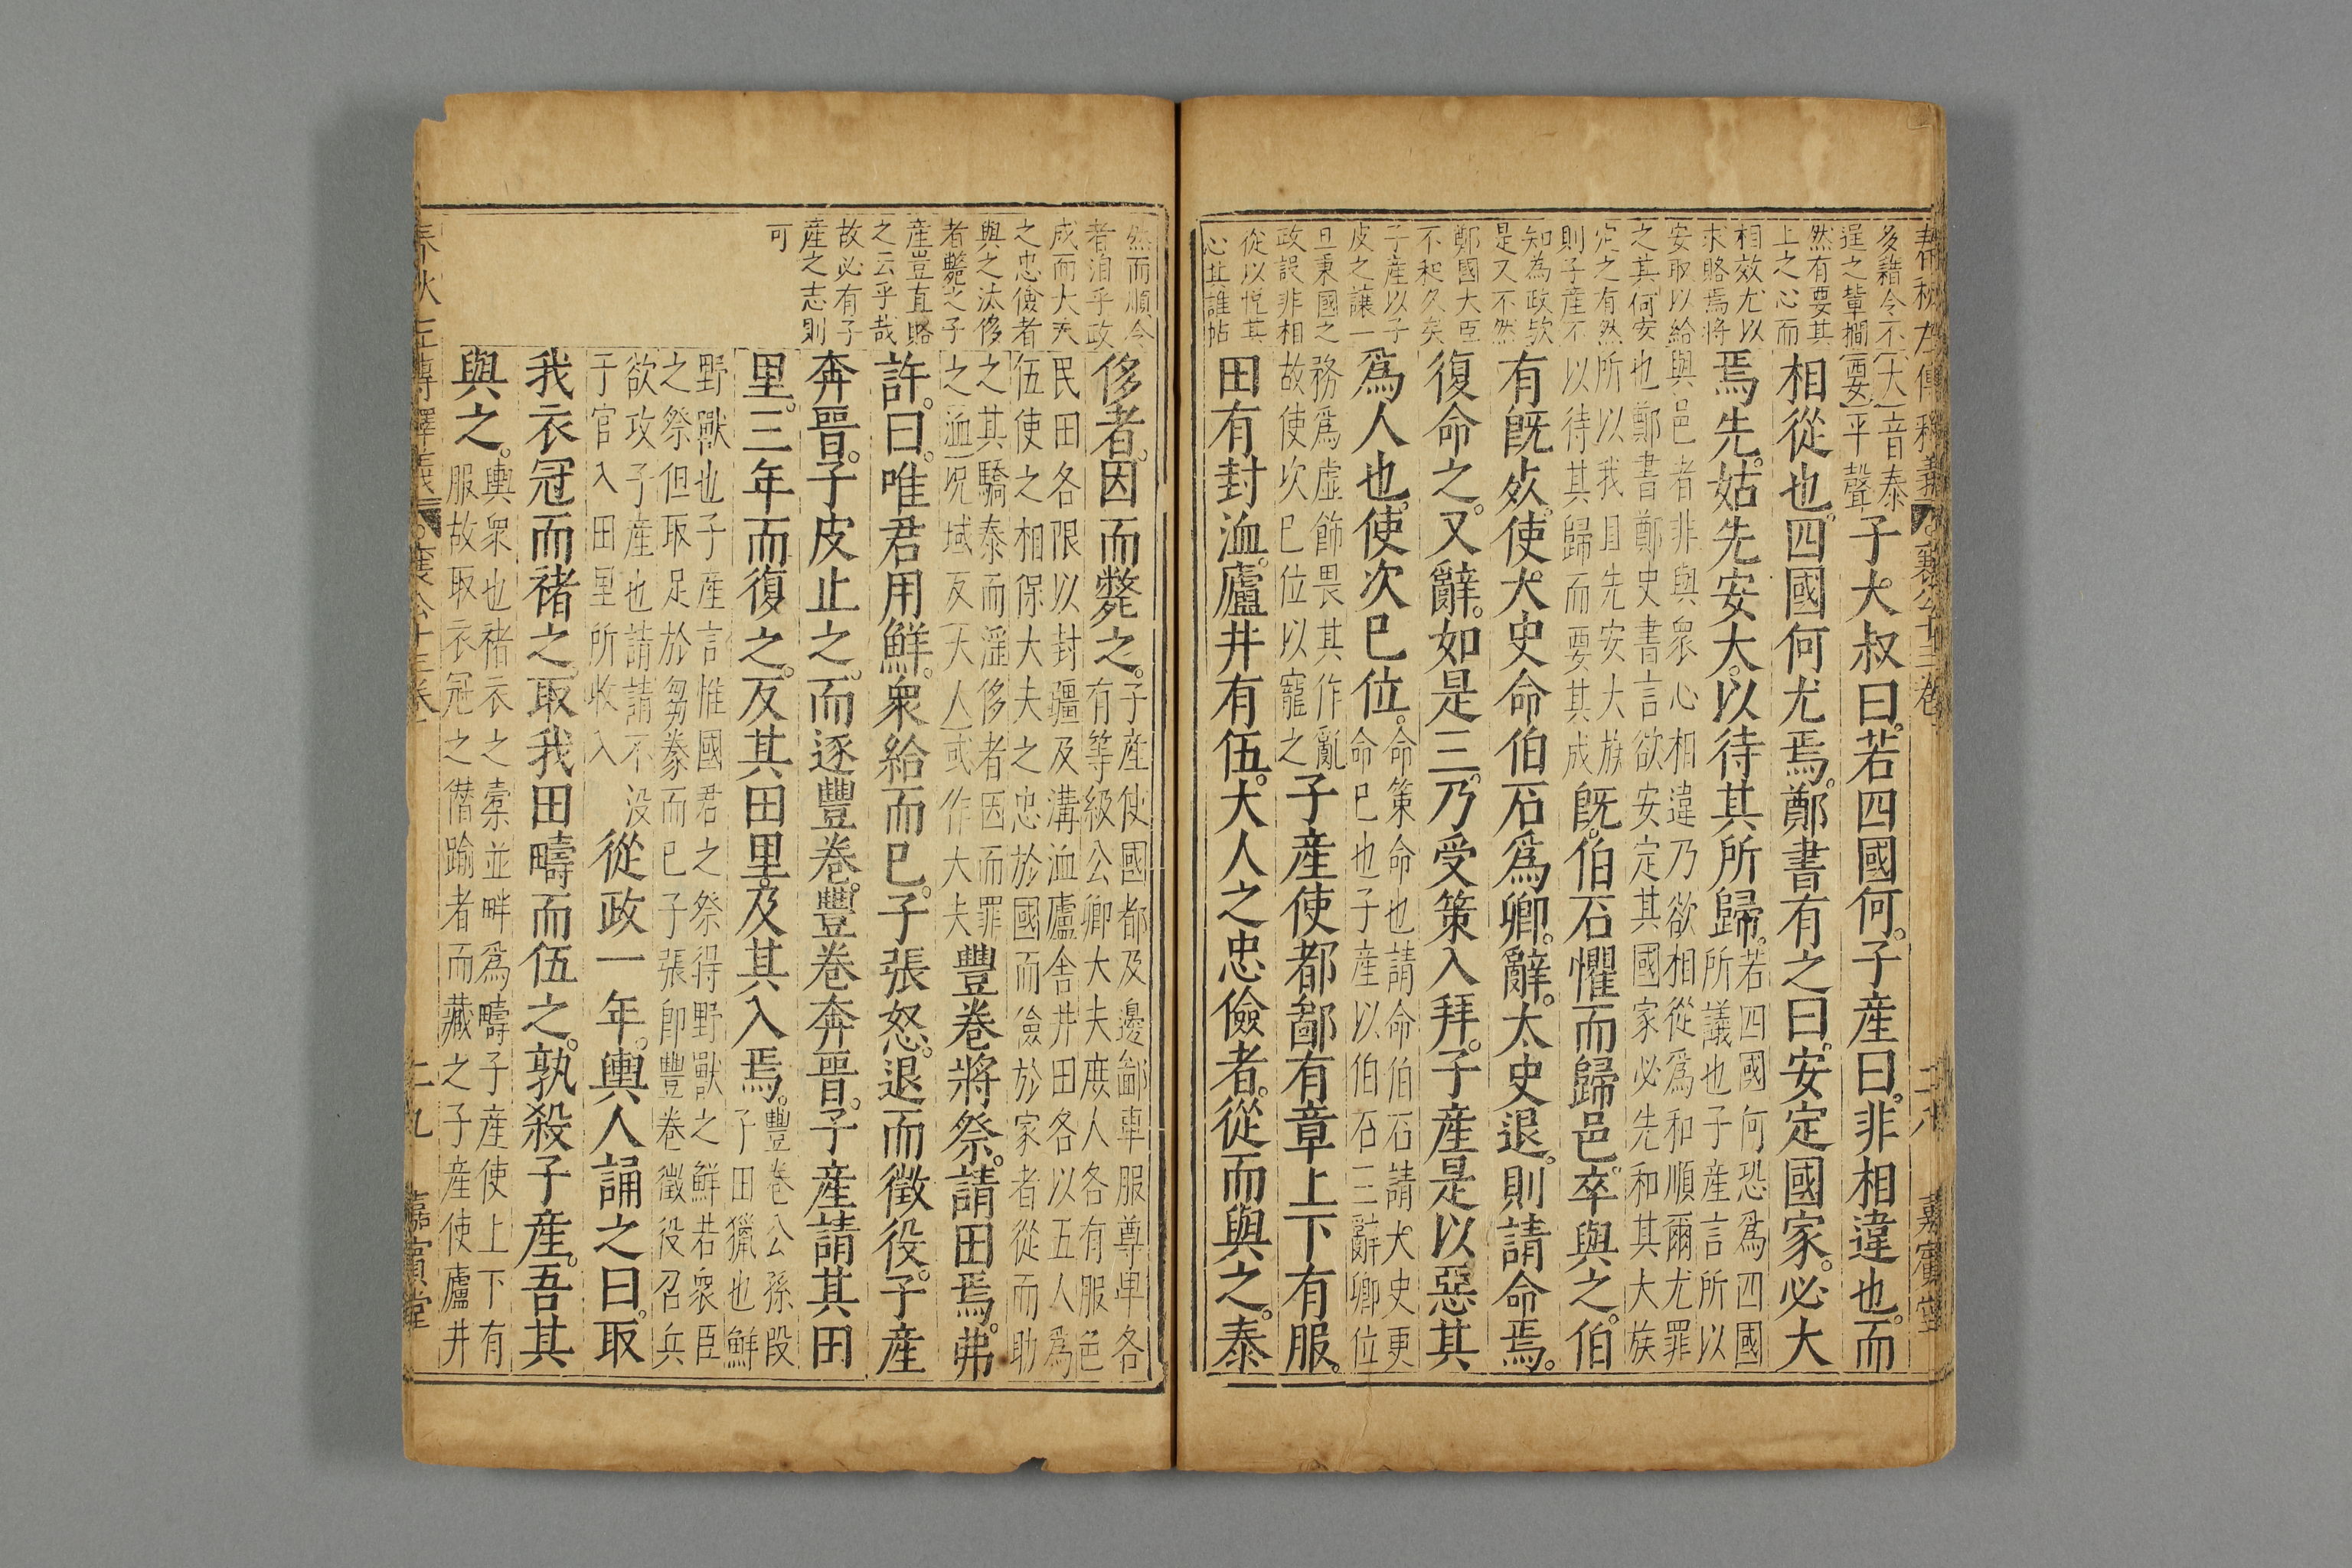 春秋左傳釋義 襄公十三卷 二八 嘉賓堂
多藉令不
逞之輩擱
然有要其
上之心而
相效尤以
求賂焉將
安取以給
之其何安
定之有然
則子產不
知為政歟
是又不然
鄭國大臣
不和久矣
子產以子
皮之讓一
旦秉國之
政設非相
從以悅其
心其誰帖
大音泰
要平聲
子大叔曰若四國何。子產曰。非相違也。而
相從也。四國何尤焉。鄭書有之曰。安定國家。必大
焉先。姑先安大。以待其所歸。
若四國何恐爲四國
所議也子產言所以
與邑者非與衆心相違乃欲相從爲和順爾尤罪
也鄭書鄭史書言欲安定其國家必先和其大族
所以我且先安大族
以待其歸而要其成
既。伯石懼而歸邑。卒與之。伯
有既死。使大史命伯石爲卿。辭。太史退。則請命焉。
復命之。又辭。如是三。乃受策入拜。子產是以惡其
爲人也。使次已位。
命策命也請命伯石請大史更
命已也子產以伯石三辭卿位
務爲虛飾畏其作亂
故使次已位以寵之
子產使都鄙有章上下有服。
田有封洫。廬井有伍。大人之忠儉者。從而與之。泰
然而順令
者洎乎政
成而大夫
之忠儉者
與之汰侈
者斃之子
產豈直賂
之云乎哉
故必有子
產之志則
可
侈者。因而斃之。
子產使國都及邊鄙車服尊卑各
有等級公卿大夫庶人各有服色
民田各限以封疆及溝洫廬舍井田各以五人爲
伍使之相保大夫之忠於國而儉於家者從而助
之其驕泰而淫侈者因而罪
之洫況域反大人或作大夫
豐卷將祭。請田焉。弗
許。曰。唯君用鮮。衆給而已。子張怒。退而徵役。子產
奔晉。子皮止之。而逐豐卷。豐卷奔晉。子產請其田
里。三年而復之。反其田里。及其入焉。
豐卷公孫段
子田獵也鮮
野獸也子產言惟國君之祭得野獸之鮮若衆臣
之祭但取足於芻豢而已子張卽豐卷徵役召兵
欲攻子產也請請不没
于官入田里所收入
從政一年。輿人誦之曰。取
我衣冠而褚之。取我田疇而伍之。孰殺子產。吾其
與之。
輿衆也褚衣之橐並畔爲疇子產使上下有
服故取衣冠之僭踰者而藏之子產使廬井
春秋左傳釋義 襄公十三卷 二九 嘉賓堂